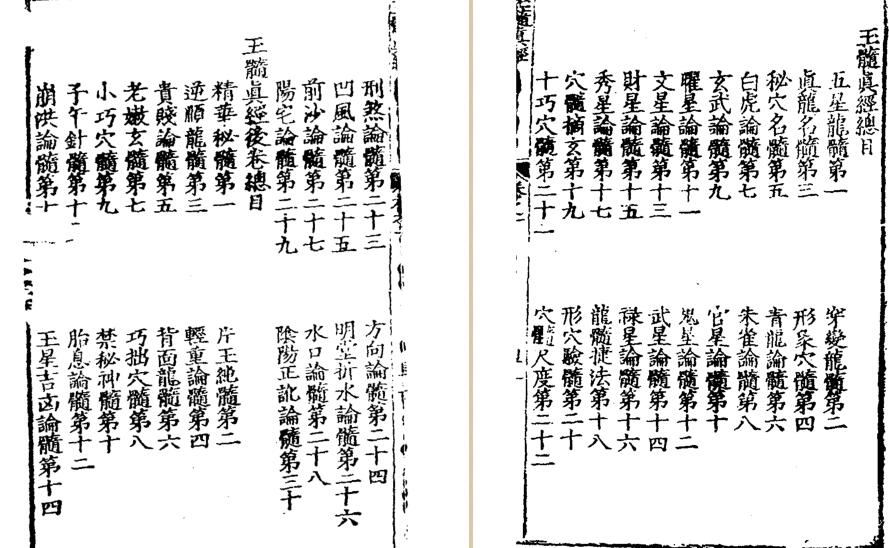 玉髓真經總目
五星龍髓第一
穿變龍髓第二
真龍名髓第三
形象穴髓第四
秘穴名髓第五
青龍論髓第六
白虎論髓第七
朱雀論髓第八
玄武論髓第九
官星論髓第十
曜星論髓第十一
鬼星論髓第十二
文星論髓第十三
武星論髓第十四
財星論髓第十五
祿星論髓第十六
秀星論髓第十七
龍髓捷法第十八
穴髓摘玄第十九
形穴驗髓第二十
十巧穴髓第二十一
穴髓尺度第二十二
刑煞論髓第二十三
方向論髓第二十四
凹風論髓第二十五
明堂折水論髓第二十六
前沙論髓第二十七
水口論髓第二十八
陽宅論髓第二十九
陰陽正訛論髓第三十
玉髓真經後卷總目
精華秘髓第一
片玉純髓第二
逆順龍髓第三
輕重論髓第四
貴賤論髓第五
背面龍髓第六
老嫩玄髓第七
巧拙穴髓第八
小巧穴髓第九
禁秘神髓第十
子午針髓第十一
胎息論髓第十二
崩洪論髓第十
玉星吉凶論髓第十四